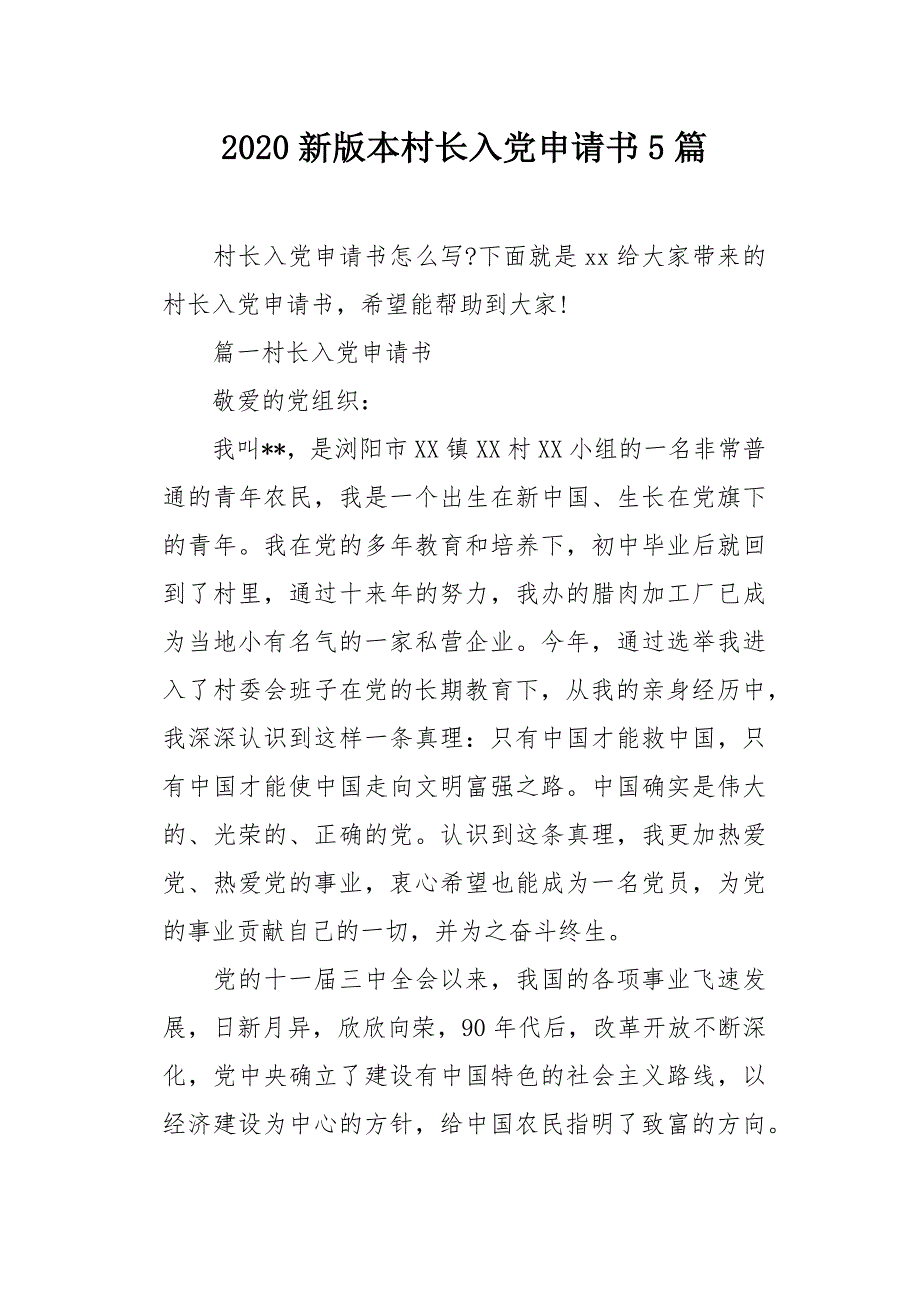 2020 新版本村长入党申请书 5 篇
村长入党申请书怎么写?下面就是 xx 给大家带来的
村长入党申请书，希望能帮助到大家!
篇一村长入党申请书
敬爱的党组织：
我叫**，是浏阳市 XX 镇 XX 村 XX 小组的一名非常普
通的青年农民，我是一个出生在新中国、生长在党旗下
的青年。我在党的多年教育和培养下，初中毕业后就回
到了村里，通过十来年的努力，我办的腊肉加工厂已成
为当地小有名气的一家私营企业。今年，通过选举我进
入了村委会班子在党的长期教育下，从我的亲身经历中，
我深深认识到这样一条真理：只有中国才能救中国，只
有中国才能使中国走向文明富强之路。中国确实是伟大
的、光荣的、正确的党。认识到这条真理，我更加热爱
党、热爱党的事业，衷心希望也能成为一名党员，为党
的事业贡献自己的一切，并为之奋斗终生。
党的十一届三中全会以来，我国的各项事业飞速发
展，日新月异，欣欣向荣，90 年代后，改革开放不断深
化，党中央确立了建设有中国特色的社会主义路线，以
经济建设为中心的方针，给中国农民指明了致富的方向。